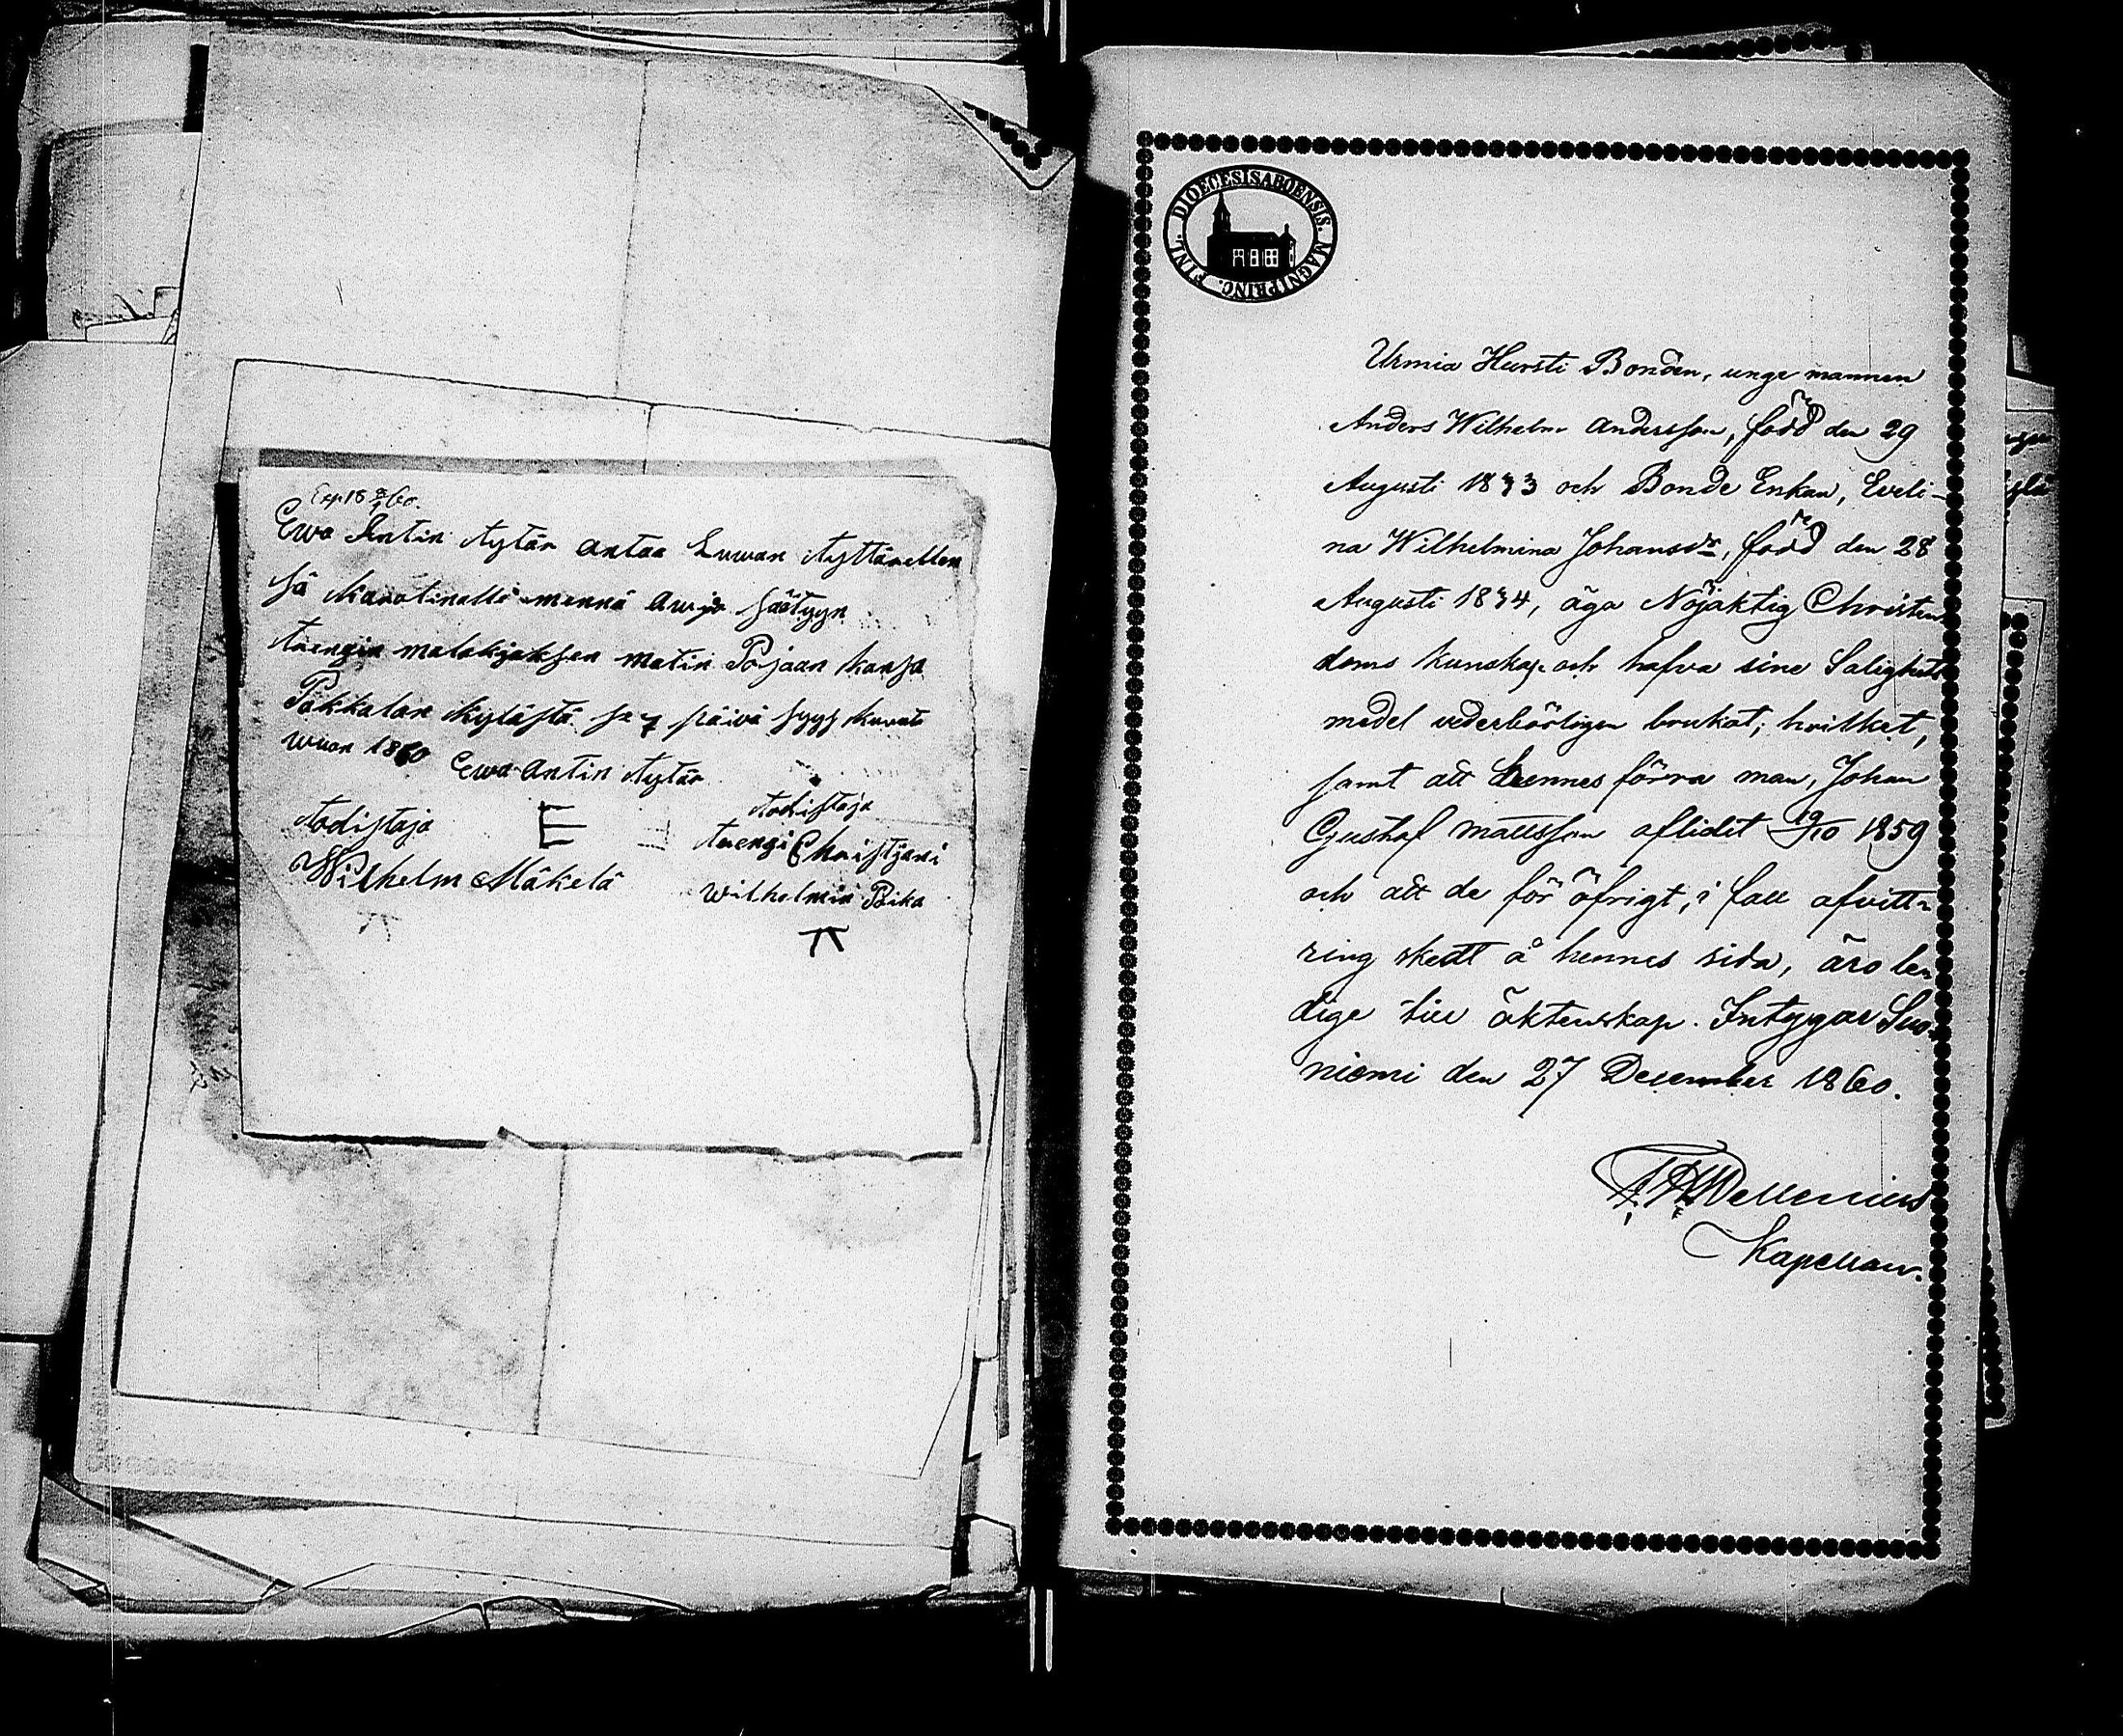 Exp 18 9/9 60.
Ewa Antin tytär antaa Luwan tyttärellen
sä Karotinalle mennä awjo säätyyn
traengin malakjaksen matin Pojaan kansa
Pakkalan kylästä se 7 päivä syys kuuta
wuon 1860 Ewa Antin tytär
todistaja E todistaja
Wilhelm Mäkelä traengi Christjani
Wilhelmin Poika
DIOECESIS ABOENSIS. MAGNI PRINC. FINL.
Urmia Hursti Bonden, unge mannen
Anders Wilhelm Andersson, född den 29
Augusti 1833 och Bonde Enkan, Eveli-
na Wilhelmina Johansdr, född den 28
Augusti 1834, äga Nöjaktig Christen
doms kunskap och hafva sine Salighets
medel vederbörligen brukat; hvilket,
samt att hennes förra man, Johan
Gustaf Mattsson aflidit 19/10 1859
och att de för öfrigt, i fall afvitt-
ring skedt å hennes sida, äro le-
dige till äktenskap. Intygar Suo-
niemi den 27 December 1860.
Wellenius
Kapellan.